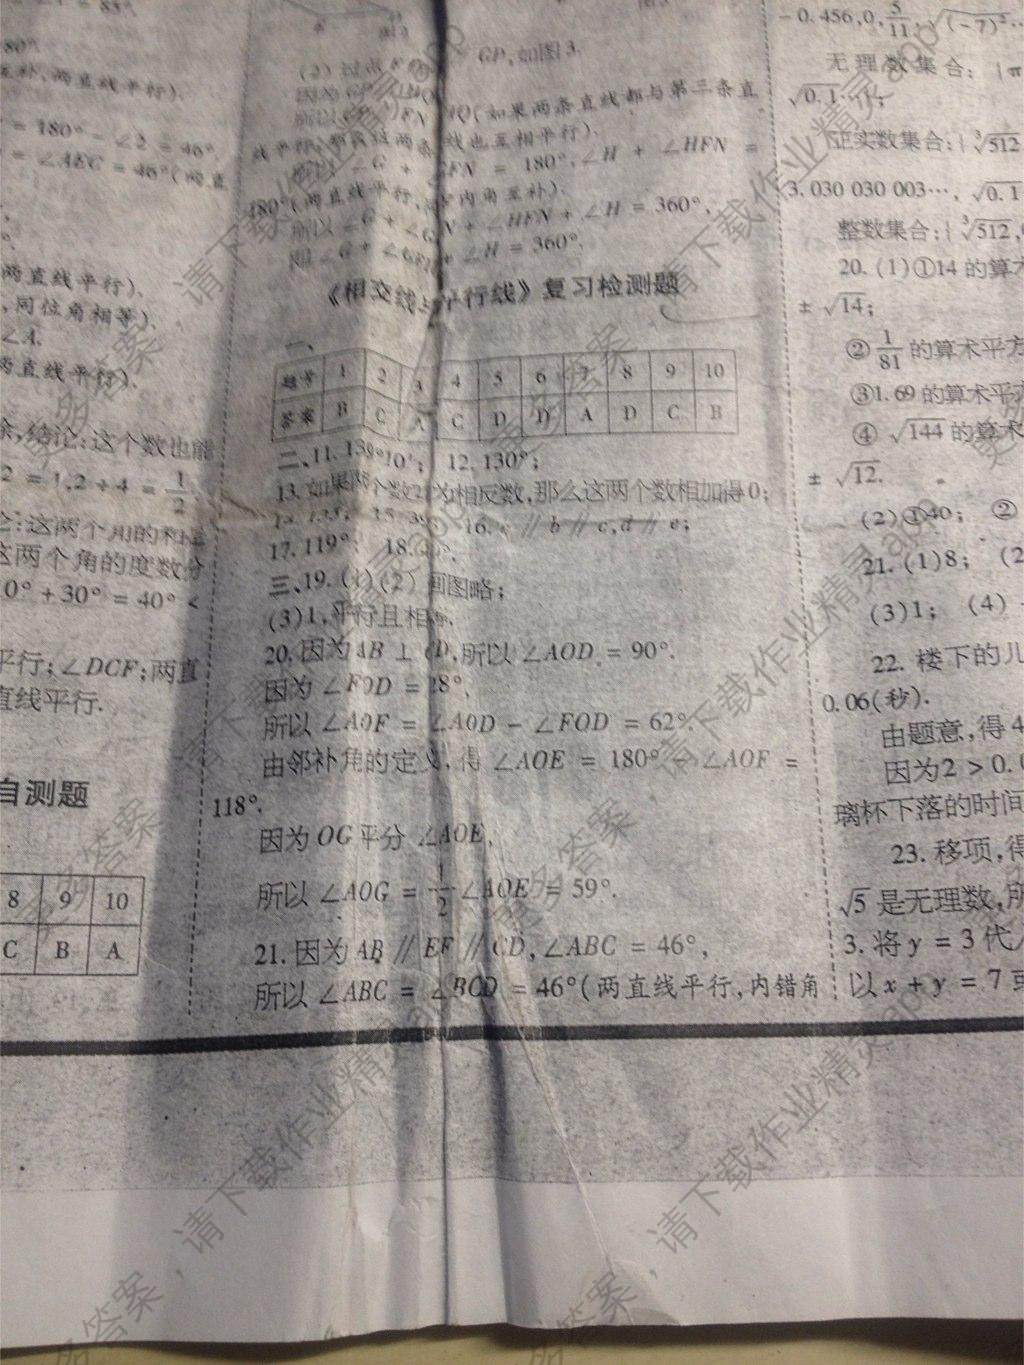 = 180° - ∠2 = 46°.
= ∠AEC = 46°(两直
两直线平行).
,同位角相等).
∠A.
两直线平行).
余,结论:这个数也能
2 = 1,2 ÷ 4 = 1/2
论:这两个角的和是
这两个角的度数分
0° + 30° = 40° <
平行;∠DCF;两直
直线平行.
自测题
8 9 10
C B A
GP,如图3.
(如果两条直线都与第三条直
线也互相平行).
= 180°,∠H + ∠HFN =
180°(两直线平行,同旁内角互补).
+ ∠HFN + ∠H = 360°,
+ ∠H = 360°.
《相交线与平行线》复习检测题
一、
题号 1 2 3 4 5 6 7 8 9 10
答案 B C A C D D A D C B
二、11. 12. 130°;
13. 如果两个数互为相反数,那么这两个数相加得0;
16. ∥ b ∥ c,d ∥ e;
17. 119°; 18.
三、19. (1)(2) 画图略;
(3)1,平行且相等.
20. 因为 AB ⊥ CD,所以 ∠AOD = 90°.
因为 ∠FOD = 28°,
所以 ∠AOF = ∠AOD - ∠FOD = 62°.
由邻补角的定义,得 ∠AOE = 180° - ∠AOF =
118°.
因为 OG 平分 ∠AOE,
所以 ∠AOG = 1/2 ∠AOE = 59°.
21. 因为 AB ∥ EF ∥ CD,∠ABC = 46°,
所以 ∠ABC = ∠BCD = 46°(两直线平行,内错角
-0.456,0,5/11,√(-7)²
无理数集合:{π
√0.1…};
正实数集合:{∛512
3.030 030 003…,√0.1
整数集合:{∛512,
20. (1)①14 的算术
± √14;
②1/81 的算术平方
③1.69 的算术平方
④ √144 的算术
± √12.
(2)①40; ②
21. (1)8; (2
(3)1; (4)
22. 楼下的儿
0.06(秒).
由题意,得 4
因为2 > 0.
璃杯下落的时间
23. 移项,得
√5 是无理数,所
3. 将 y = 3 代入
以 x + y = 7 或
请下载作业精灵app
更多答案